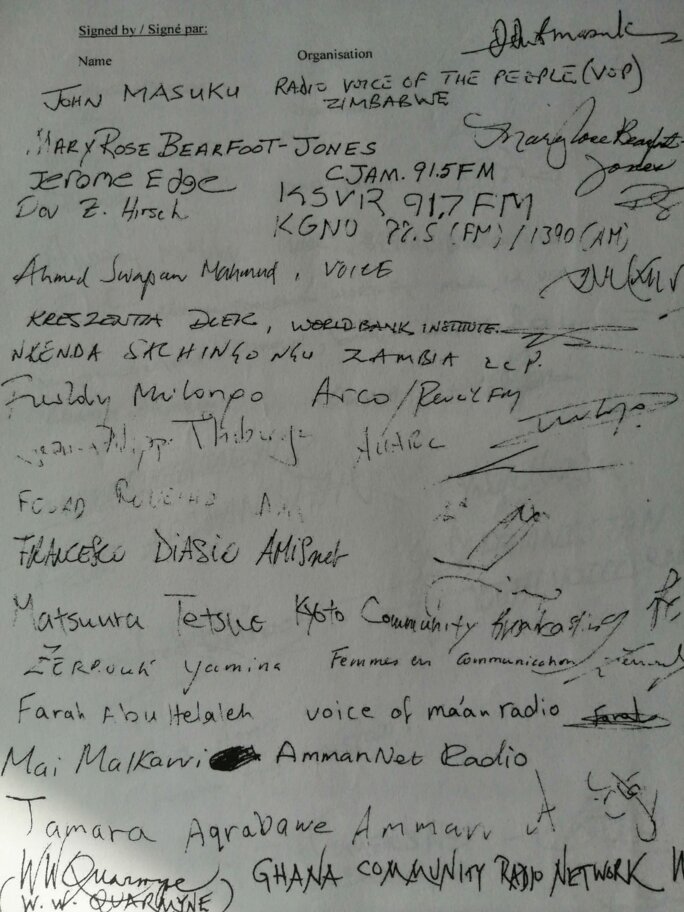 Signed by / Signé par:
Name Organisation
JOHN MASUKU RADIO VOICE OF THE PEOPLE (VOP)
ZIMBABWE
MARY ROSE BEARFOOT-JONES
CJAM. 91.5 FM
Jerome Edge KSVR 91.7 FM
Dov Z. Hirsch KGNU (FM) / 1390 (AM)
Ahmed Swapan Mahmud, VOICE
KRESZENTIA, WORLD BANK INSTITUTE.
ZAMBIA
Freddy Mulongo Arco/Reveil FM
FOUAD
FRANCESCO DIASIO AMISnet
Matsuura Tetsuo Kyoto Community Broadcasting
ZERROUKI Yamina Femmes en communication
Farah Abu Helaleh voice of ma'an radio
Mai Malkawi AmmanNet Radio
Tamara Aqrabawe Amman
WW Quarmyne, GHANA COMMUNITY RADIO NETWORK
(W. W. QUARMYNE)